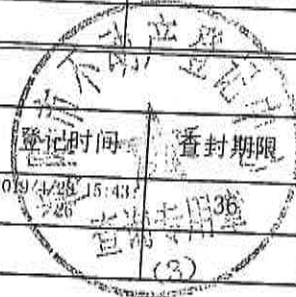 不动产登记
登记时间 查封期限
2019/4/29 15:43:
26 36
查询专用章
(3)